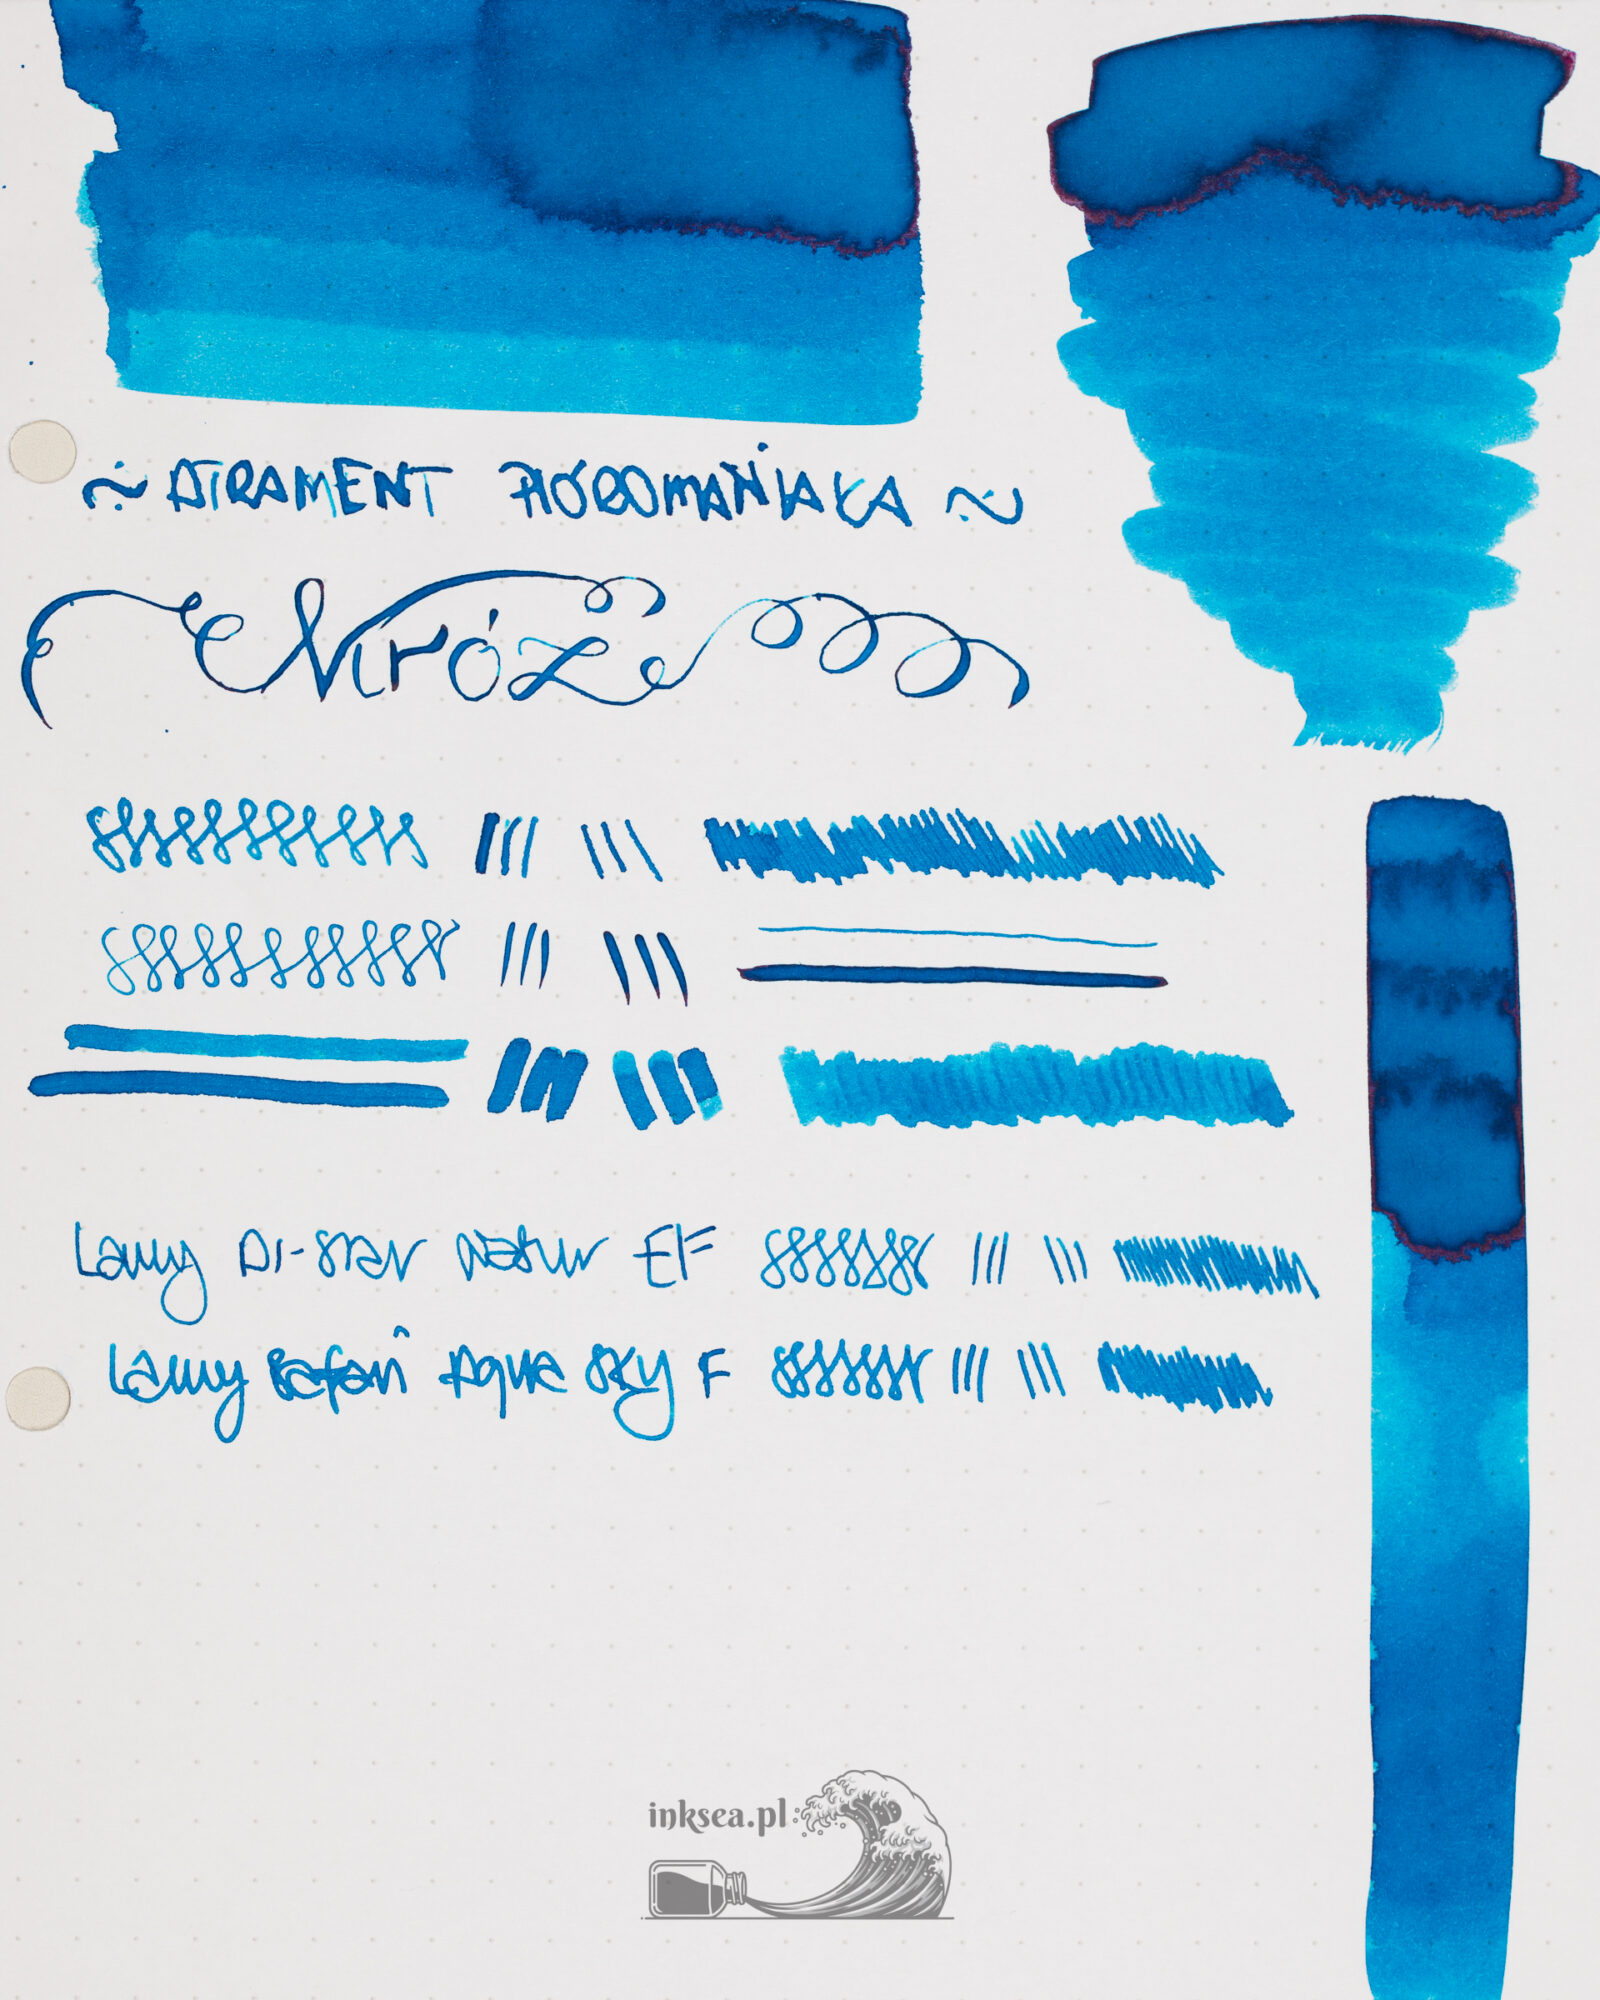 ~ ATRAMENT PIÓROMANIAKA ~
Mróz
Lamy Al-star Natur EF
Lamy Safari Aqua Sky F
inksea.pl